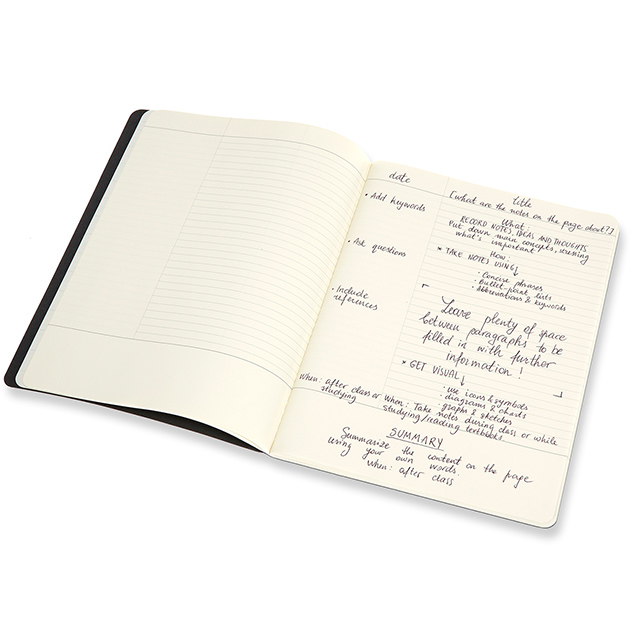 date
title
[what are the notes on the page about?]
• Add keywords
• Ask questions
• Include
references
What:
RECORD NOTES, IDEAS AND THOUGHTS
Put down main concepts, stressing
what's important
How:
* TAKE NOTES USING↓
• Concise phrases
• Bullet-point lists
• Abbreviations & keywords
Leave plenty of space
between paragraphs to be
filled in with further
information!
* GET VISUAL↓
• use icons & symbols
• diagrams & charts
• graphs & sketches
When: after class or
studying
When: Take notes during class or while
studying/reading textbooks
SUMMARY
Summarize the content on the page
using your own words.
When: after class